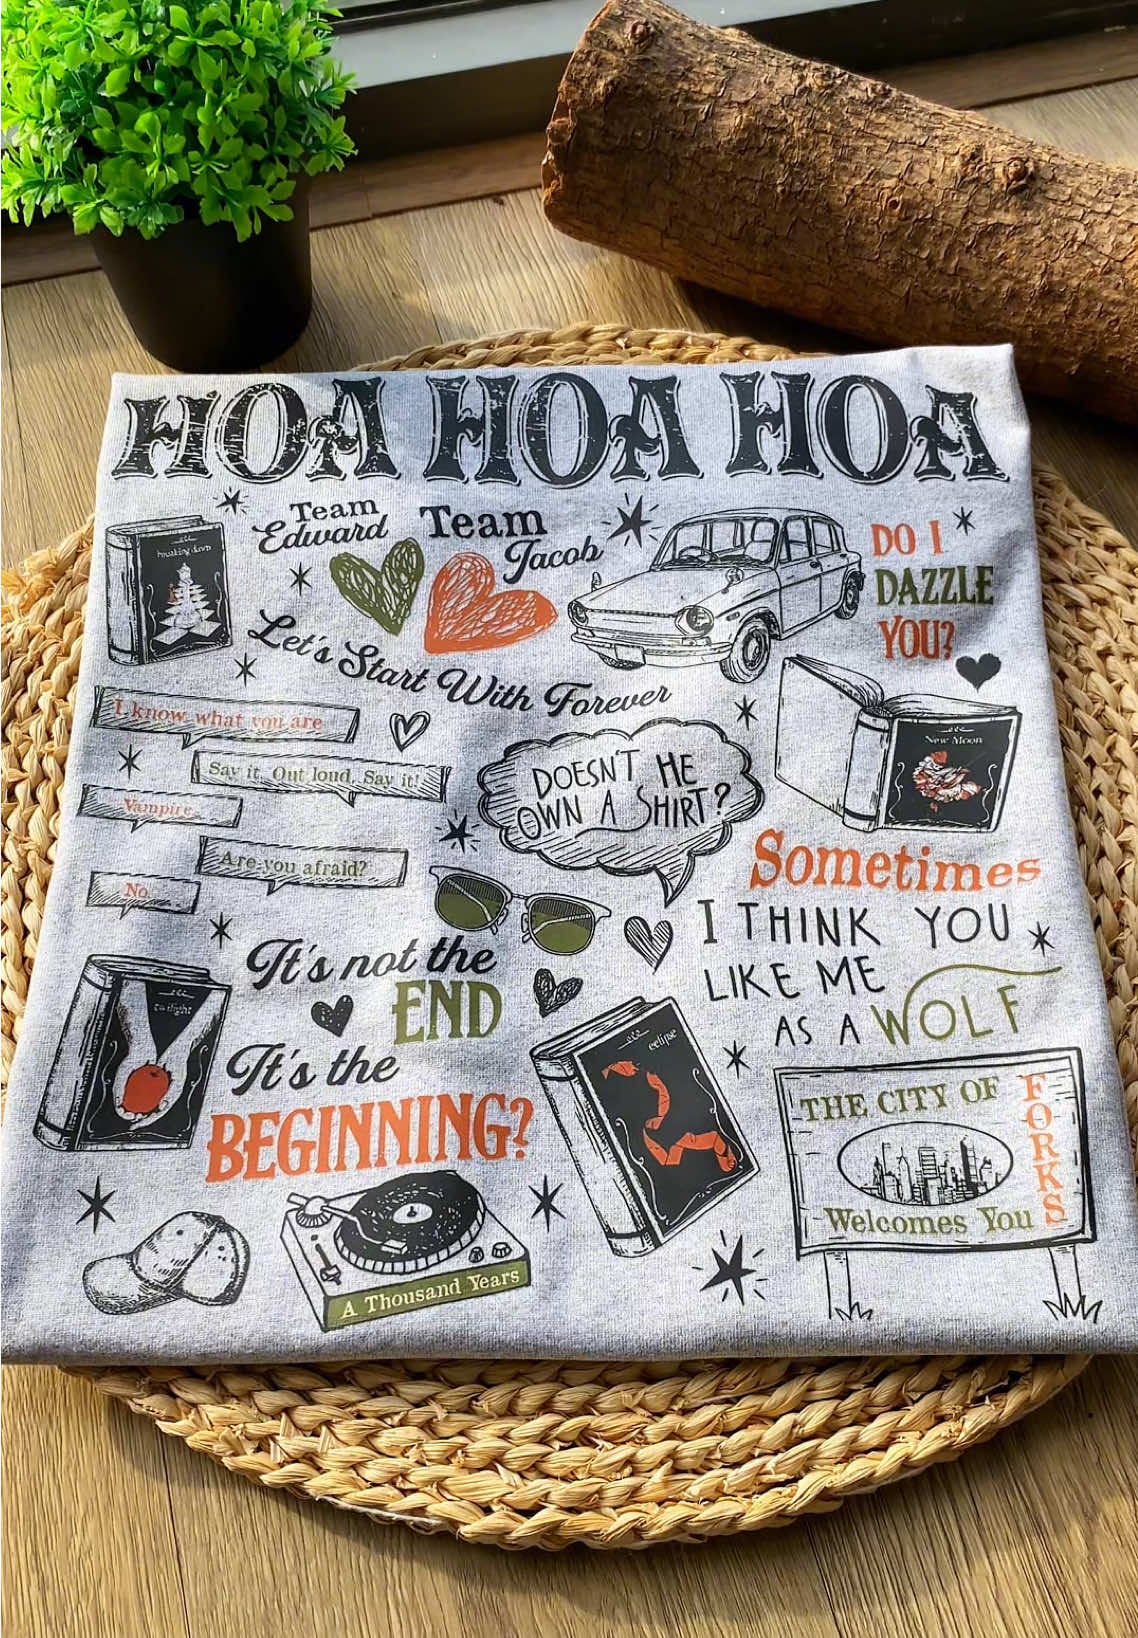 HOA HOA HOA
Team
Edward
Team
Jacob
DO I
DAZZLE
YOU?
breaking dawn
Let's Start With Forever
I know what you are
Say it. Out loud. Say it!
Vampire.
Are you afraid?
No.
DOESN'T HE
OWN A SHIRT?
New Moon
Sometimes
I THINK YOU
LIKE ME
AS A WOLF
twilight
It's not the
END
It's the
BEGINNING?
eclipse
THE CITY OF
FORKS
Welcomes You
A Thousand Years